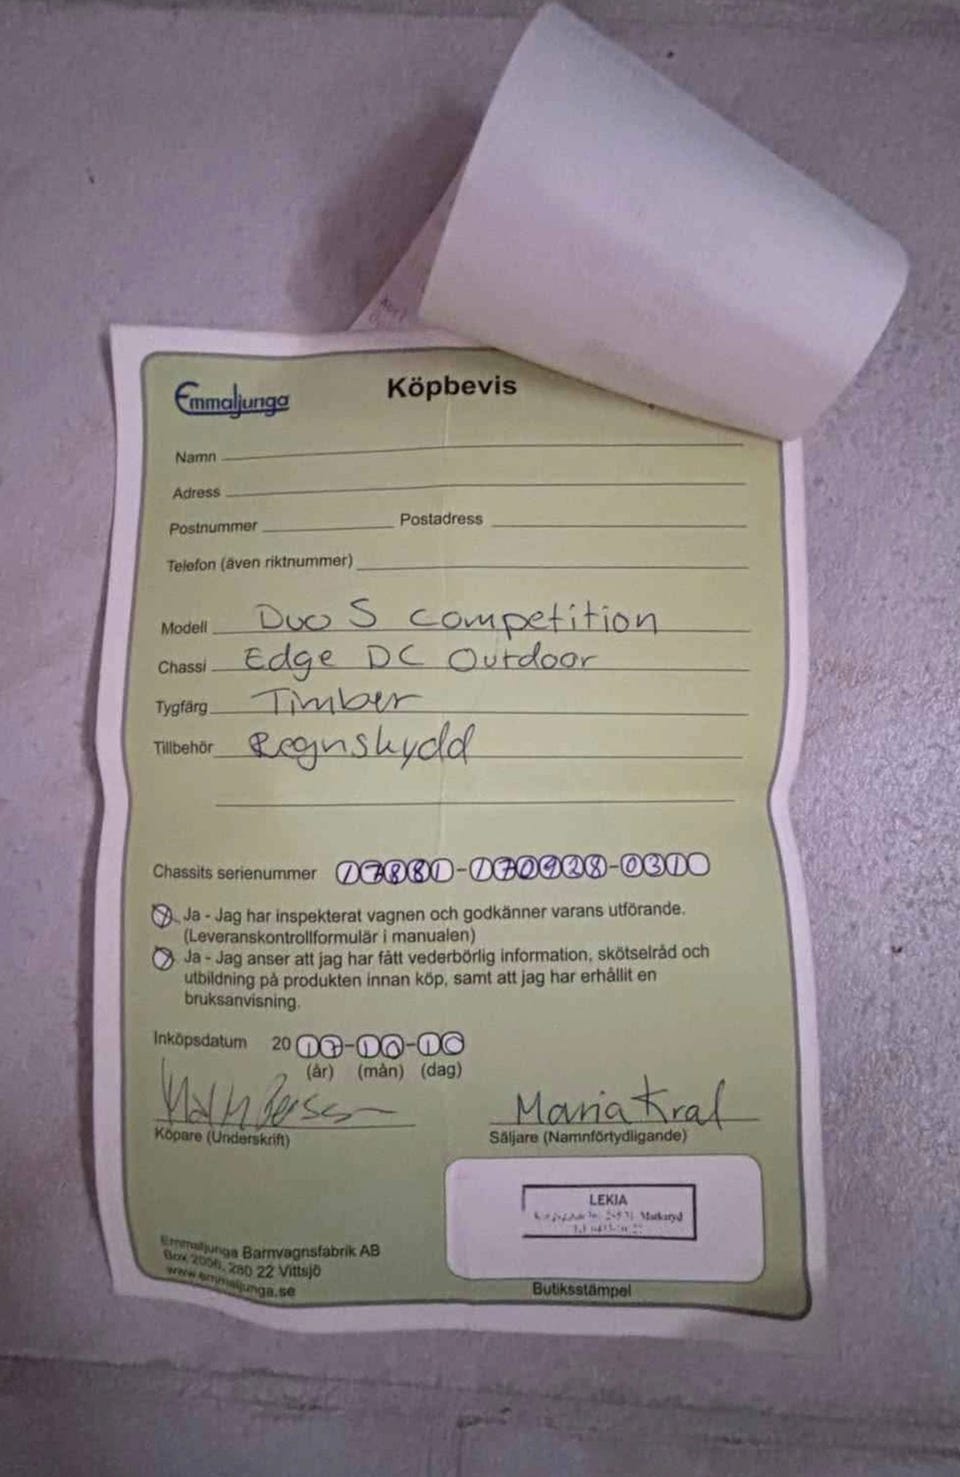 Emmaljunga
Köpbevis
Namn
Adress
Postnummer Postadress
Telefon (även riktnummer)
Modell Duo S Competition
Chassi Edge DC Outdoor
Tygfärg Timber
Tillbehör Regnskydd
Chassits serienummer 17881-170928-0310
Ja - Jag har inspekterat vagnen och godkänner varans utförande.
(Leveranskontrollformulär i manualen)
Ja - Jag anser att jag har fått vederbörlig information, skötselråd och
utbildning på produkten innan köp, samt att jag har erhållit en
bruksanvisning.
Inköpsdatum 20 17-10-10
(år) (mån) (dag)
Maria Kral
Köpare (Underskrift) Säljare (Namnförtydligande)
LEKIA
Markaryd
Emmaljunga Barnvagnsfabrik AB
Box 2056, 280 22 Vittsjö
www.emmaljunga.se
Butiksstämpel